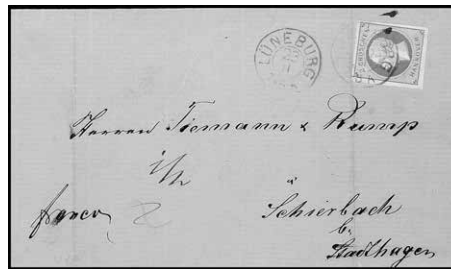 LÜNEBURG
HANNOVER
Herren Tiemann & Rump
franco
à
Schierbach
b.
Stadthagen